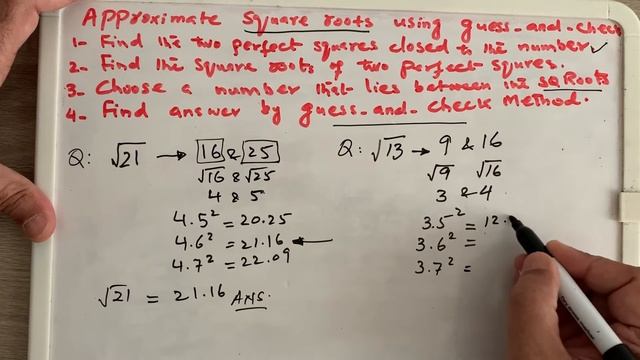 APProximate square roots using guess-and-check
1- Find the two perfect squares closed to the number ✓
2- Find the square roots of two perfect squres.
3- Choose a number that lies between the sqRoots
4- Find answer by guess-and-check Method.
Q: √21 → 16 & 25
√16 & √25
4 & 5
4.5² = 20.25
4.6² = 21.16 ←
4.7² = 22.09
√21 = 21.16 Ans.
Q: √13 → 9 & 16
√9 √16
3 & 4
3.5² = 12.
3.6² =
3.7² =